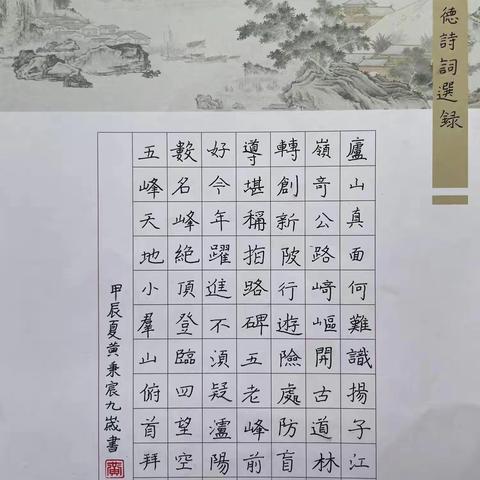 德詩詞選録
廬山真面何難識揚子江
嶺竒公路崎嶇開古道林
轉創新陂行遊險處防盲
導堪稱指路碑五老峰前
好今年躍進不湏疑瀘陽
數名峰絕頂登臨四望空
五峰天地小羣山俯首拜
甲辰夏黃秉宸九嵗書
黃